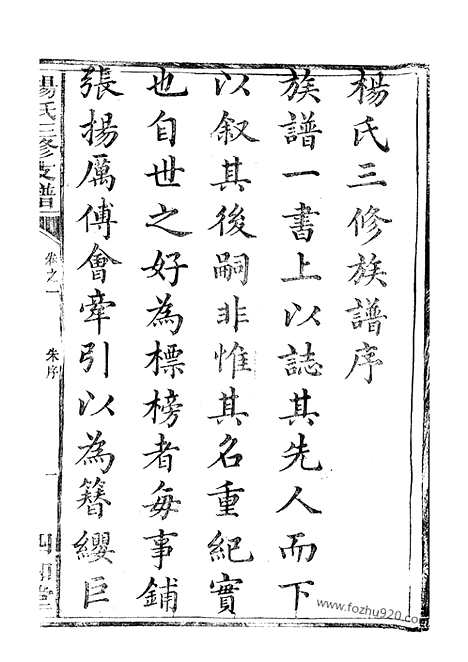 楊氏三修族譜序
族譜一書上以誌其先人而下
以叙其後嗣非惟其名重紀實
也自世之好為標榜者每事鋪
張揚厲傅會牽引以為簪纓巨
楊氏三修支譜
卷之一
朱序
一
四知堂
www.fozhu920.com